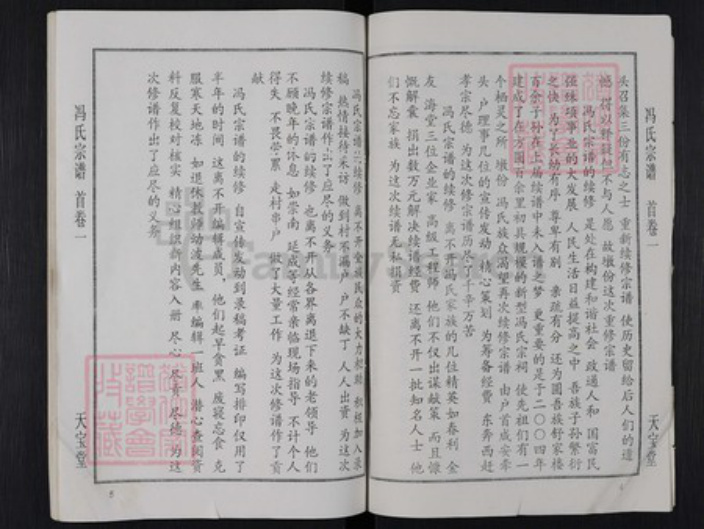 冯氏宗谱 首卷一
天宝堂
头召集三份有志之士 重新续修宗谱 使历史留给后人们的遗
憾 得以释疑 但不与人愿 故墩份这次重修宗谱
冯氏宗谱的续修 是处在构建和谐社会 政通人和 国富民
强 殊项事业的大发展 人民生活日益提高之中 吾族子孙繁衍
之快 为了长幼有序 尊卑有别 亲疏有分 还为圆吾族舒家楼
百余子孙在上届续谱中未入谱之梦 更重要的是于二00四年
建成了在方圆百余里初具规模的新型冯氏宗祠 使先祖们有一
个栖灵之所 墩份 冯氏族众渴望再次续修宗谱 由户首成安牵
头 户理事几位的宣传发动 精心策划 为筹备经费 东奔西赶
孝宗尽德 为这次修宗谱历尽了千辛万苦
冯氏宗谱的续修 离不开冯氏家族的几位精英如春利 金
友 海堂三位企业家 高级工程师 他们不仅出谋献策 而且慷
慨解囊 捐出数万元解决续谱经费 还离不开一批知名人士 他
们不忘家族 为这次续谱无私捐资
4
冯氏宗谱的续修 离不开全族民众的大力相助 积极加入录
稿 热情接待采访 做到村不漏户 户不缺丁 人人出资 为这次
续修宗谱作出了应尽的义务
冯氏宗谱的续修 也离不开从各界离退下来的老领导 他们
不顾晚年的休息 如崇南 延成等经常亲临现场指导 不计个人
得失 不畏劳累 走村串户 做了大量工作 为这次修谱作了贡
献
冯氏宗谱的续修 自宣传发动到录稿考证 编写排印仅用了
半年的时间 这离不开编辑成员，他们起早贪黑 废寝忘食 克
服寒天地冻 如退休教师幼波先生 率编辑一班人 潜心查阅资
料反复校对核实 精心组织新内容入册 尽心 尽责 尽德 为这
次修谱作出了应尽的义务
冯氏宗谱 首卷一
天宝堂
5